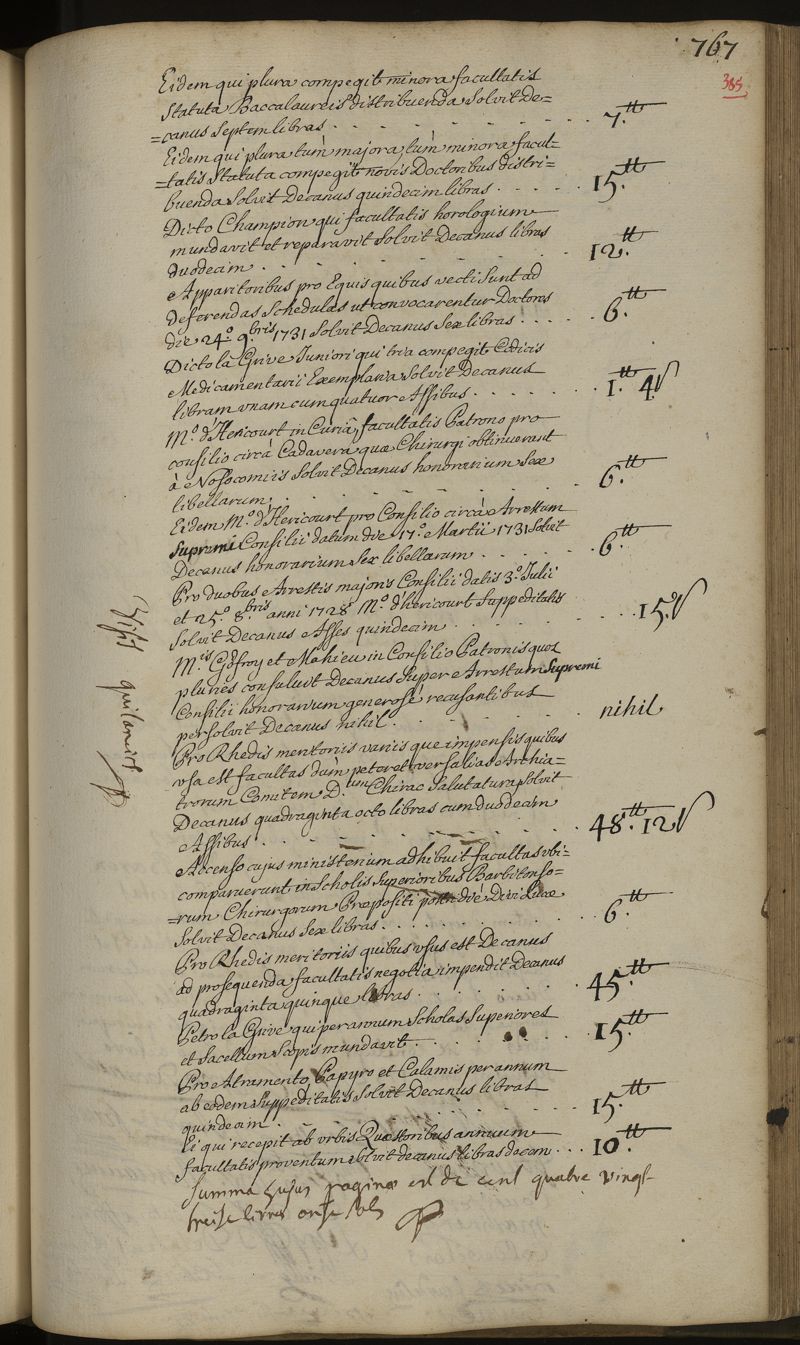 767
385
Eidem qui plura compegit minora facultatis
Statuta Baccalaureis distribuenda Solvit De=
=canus Septem libras . . . . . . . . 7.tt
Eidem qui plura tùm majora, tùm minora facul=
=tatis Statuta compegit novis Doctoribus distri=
buenda Solvit Decanus quindecim libras . . . . . 15.tt
Dicto Champion qui facultatis horologium
mundavit et reparavit Solvit Decanus libras
duodecim . . . . . . . . 12.tt
Apparitoribus pro Equis quibus vecti Sunt ad
deferendas Schedulas ut convocarentur Doctores
die 24.o 9.bris 1731 Solvit Decanus Sex libras . . . . . 6.tt
Dicto la Grive Juniori qui tria compegit Codicis
Medicamentarii Exemplaria Solvit Decanus
libram unam cum quatuor Assibus . . . . . . 1.tt 4ſ
M.o d'Hericourt in Curiâ, facultatis Patrono pro
consilio circà Cadavera quæ Chirurgi obtinuerunt
à Nosocomiis Solvit Decanus honorarium Sex
libellarum . . . . . . . . 6.tt
Eidem M.o d'Hericourt pro Consilio circà Arrestum
Supremi Consilii datum die 17.o Martii 1731 Solvit
Decanus honorarium Sex libellarum . . . . . 6.tt
Pro duobus Arrestis majoris Consilii datis 3.o Julii
et 25.o 8.bris anni 1728 M.o d'hericourt Suppeditatis
Solvit Decanus Asses quindecim . . . . . . . 15.ſ
M.is Godfroy et Mahieu in Consilio Patronis quos
pluries consuluit Decanus Super Arrestum Supremi
Consilii honorarium generosè recusantibus
persolvit Decanus nihil . . . . . . nihil
Pro Rhedis meritoriis variisque impensis quibus
usa est facultas dùm peteret versalias Archia=
trorum Comitem D.um Chirac Salutatura Solvit
Decanus quadraginta octo libras cum duodecim
Assibus . . . . . . . . 48.tt 12ſ
Accenso cujus ministerium adhibuit facultas ubi=
comparuerunt in Scholis Superioribus Barbitonso=
=rum Chirurgorum Præpositi postridiè Divi Lucæ
Solvit Decanus Sex libras . . . . . . . 6.tt
Pro Rhedis meritoriis quibus usus est Decanus
ad prosequenda facultatis negotia impendit Decanus
quadraginta quinque libras . . . . . . . 45.tt
Petro la Grive qui per annum Scholas Superiores
et Sacellum Scopis mundavit . . . . . . 15.tt
Pro Atramento, Papyro et Calamis per annum
ab eodem Suppeditatis Solvit Decanus libras
quindecim . . . . . . . . 15.tt
Ei qui recepit ab urbis Quæstoribus annuum
facultatis proventum Solvit decanus libras decem . . . 10.tt
Summa hujus paginæ est de cent quatre vingt
treize livres onze sols